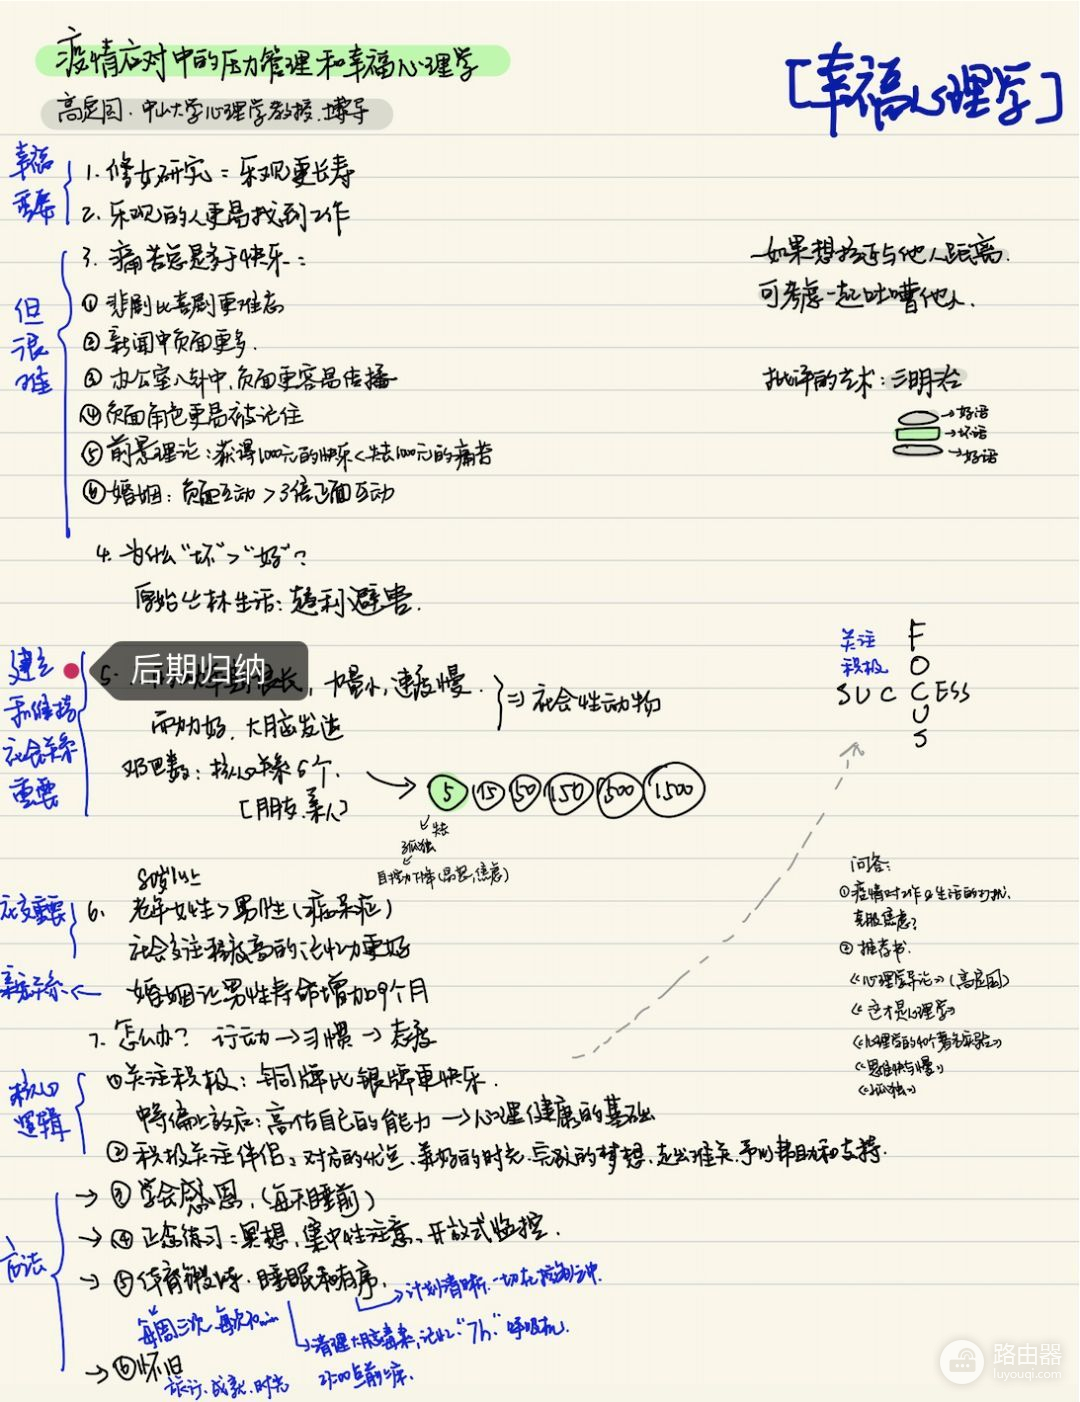 疫情应对中的压力管理和幸福心理学
[幸福心理学]
高定国. 中山大学心理学教授. 博导
幸福
重要
1. 修女研究 = 乐观更长寿
2. 乐观的人更易找到工作
但
很
难
3. 痛苦总是多于快乐:
① 悲剧比喜剧更难忘
② 新闻中负面更多.
③ 办公室八卦中, 负面更容易传播
④ 负面角色更易被记住
⑤ 前景理论: 获得1000元的快乐<失去1000元的痛苦
⑥ 婚姻: 负面互动 > 3倍正面互动
如果想拉近与他人距离.
可考虑一起吐嘈他人.
批评的艺术: 三明治
好话
坏话
好话
4. 为什么"坏">"好"?
原始丛林生活: 趋利避害.
建立
和维持
社会关系
重要
后期归纳
5.
长, 力量小, 速度慢.
而助力好, 大脑发达
⇒ 社会性动物
邓巴数: 核心关系5个.
[朋友. 亲人]
5 15 50 150 500 1500
失去
孤独
自控力下降
关注
积极
F
O
SUCCESS
U
S
80岁以上
社交重要
6. 老年女性>男性(痴呆症)
社会交往积极高的记忆力更好
婚姻让男性寿命增加9个月
7. 怎么办? 行动→习惯→态度
核心
逻辑
①关注积极: 铜牌比银牌更快乐.
高估自己的能力 → 心理健康的基础
② 积极关注伴侣: 对方的优点, 美好的时光, 完成的梦想, 走出难关, 予以帮助和支持.
方法
→ ③ 学会感恩. (每天睡前)
→ ④ 正念练习: 冥想, 集中性注意、开放式监控.
→ ⑤ 体育锻炼. 睡眠和有序.
计划清晰. 一切在控制之中.
每周三次 每次30min
清理大脑毒素, 记忆. "7h." 呼吸机.
23:00点前上床.
→ ⑥ 怀旧
旅行. 成就. 时光
问答:
① 疫情对工作及生活的打扰.
克服焦虑?
② 推荐书.
《心理学导论》(高定国)
《这才是心理学》
《心理学的40个著名实验》
《思维快与慢》
《孤独》
路由器
luyouqi.com